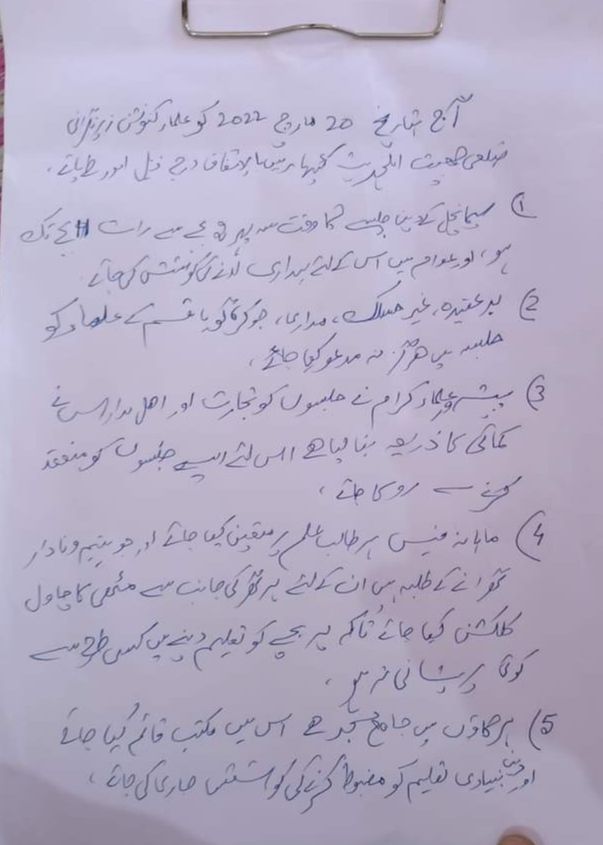 آج بتاریخ 20 مارچ 2022 کو علماء کنونشن زیر نگرانی
ضلعی جمعیت اہلحدیث میں بالاتفاق درج ذیل امور طے پائے۔
1) سیمانچل کے دینی جلسے کا وقت سہ پہر بجے سے رات 11 بجے تک
ہو، اور عوام میں اس کے لئے بیداری لانے کی کوشش کی جائے
2) بد عقیدہ، غیر مسلک، مداری، جوکر گویا قسم کے علماء کو
جلسہ میں ہرگز نہ مدعو کیا جائے،
3) پیشہ ور علماء کرام نے جلسوں کو تجارت اور اھل مدارس نے
کمائی کا ذریعہ بنا لیا ہے اس لئے ایسے جلسوں کو منعقد
کرنے سے روکا جائے،
4) ماہانہ فیس ہر طالب علم پر متعین کیا جائے اور جو یتیم و نادار
گھرانے کے طلبہ ہیں ان کے لئے ہر گھر کی جانب سے مٹھی کا چاول
کلکشن کیا جائے تاکہ ہر بچے کو تعلیم دینے میں کسی طرح سے
کوئی پریشانی نہ ہو،
5) ہر گاؤں میں جامع مسجد ہے اس میں مکتب قائم کیا جائے
اور دینی بنیادی تعلیم کو مضبوط کرنے کی کوشش جاری کی جائے،